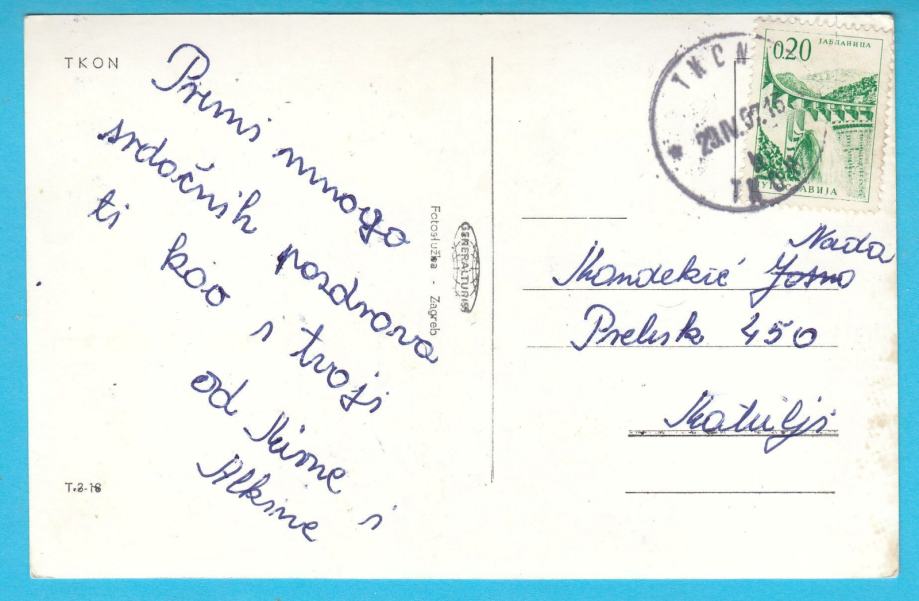 TKON
Primi mnogo
srdočnih pozdrava
ti kao i tvoji
od Mirne i
Alksine
T.2-18
Fotoslužba - Zagreb
GENERALTURIST
TKON
29.IV.67.16
0.20 ЈАБЛАНИЦА
ЈУГОСЛАВИЈА
Nada
Mandekić Josno
Preluk 450
Matulji